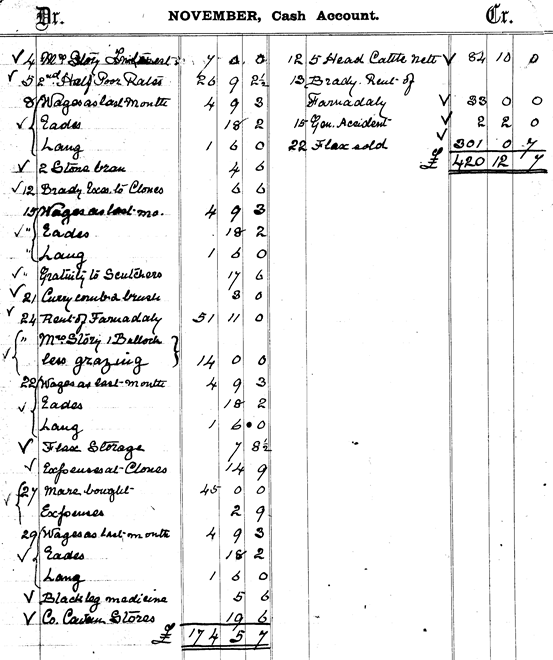 Dr. NOVEMBER, Cash Account. Cr.
√ 4 Mrs Story 7 0 0
√ 5 2nd Half Poor Rates 26 9 2½
8 Wages as last Month 4 9 3
√ Eades 18 2
Lang 1 6 0
√ " 2 Stone bran 4 6
√ 12 Brady Exes. to Clones 6 6
15 Wages as last mo. 4 9 3
√ " Eades 18 2
" Lang 1 6 0
√ " Gratuity to Scutchers 17 6
√ 21 Curry comb & brush 3 0
√ 24 Rent of Farnadaly 51 11 0
" Mrs Story 1 Bullock
√ less grazing 14 0 0
22 Wages as last month 4 9 3
√ Eades 18 2
Lang 1 6 0
√ Flax Storage 7 8½
√ Expenses at Clones 14 9
√ 27 Mare bought 45 0 0
Expenses 2 9
29 Wages as last month 4 9 3
√ Eades 18 2
Lang 1 6 0
√ Blackleg medicine 5 6
√ Co. Cavan Stores 19 6
£ 174 5 7
12 5 Head Cattle nett √ 84 10 0
13 Brady. Rent of
Farnadaly √ 33 0 0
15 Gen. Accident √ 2 2 0
22 Flax sold √ 301 0 7
£ 420 12 7